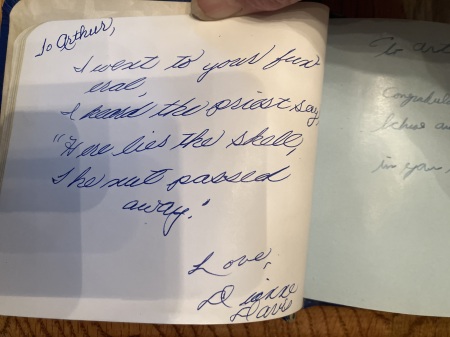 To Arthur,
I went to your fun-
eral,
I heard the priest say,
"Here lies the shell,
The nut passed
away."
Love,
Dianne
Davis
To Art
Congratula
in your